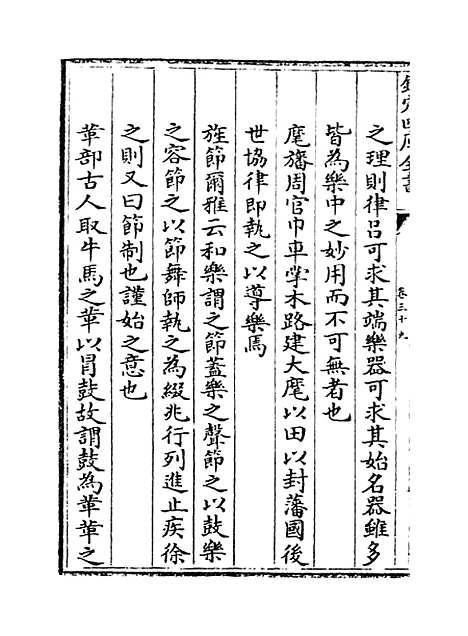 欽定四庫全書
卷三十九
之理則律吕可求其端樂器可求其始名器雖多
皆為樂中之妙用而不可無者也
麾旛周官巾車掌木路建大麾以田以封藩國後
世協律即執之以導樂焉
旌節爾雅云和樂謂之節蓋樂之聲節之以鼓樂
之容節之以節舞師執之為綴兆行列進止疾徐
之則又曰節制也謹始之意也
革部古人取牛馬之革以冒鼓故謂鼓為革革之